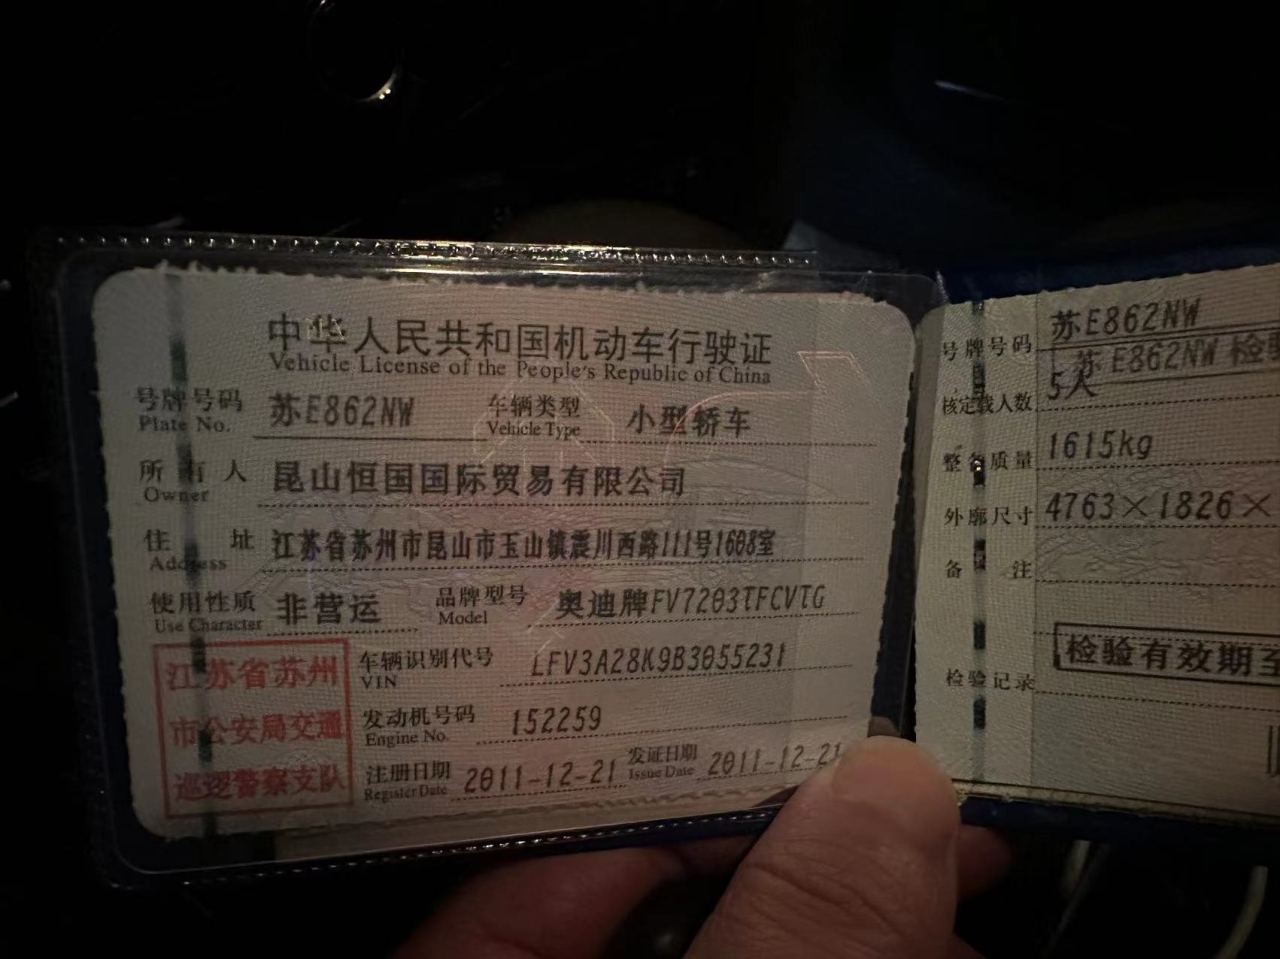 中华人民共和国机动车行驶证
Vehicle License of the People's Republic of China
号牌号码 苏E862NW 车辆类型 小型轿车
Plate No. Vehicle Type
所有人 昆山恒国国际贸易有限公司
Owner
住址 江苏省苏州市昆山市玉山镇震川西路111号1608室
Address
使用性质 非营运 品牌型号 奥迪牌FV7203TFCVTG
Use Character Model
江苏省苏州
市公安局交通
巡逻警察支队
车辆识别代号 LFV3A28K9B3055231
VIN
发动机号码 152259
Engine No.
注册日期 2011-12-21 发证日期 2011-12-21
Register Date Issue Date
号牌号码 苏E862NW
苏E862NW 检
核定载人数 5人
整备质量 1615kg
外廓尺寸 4763×1826×
备注
检验有效期至
检验记录